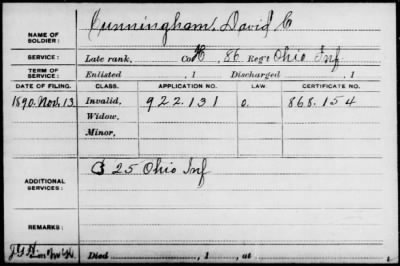 NAME OF SOLDIER: Cunningham, David C
SERVICE: Late rank, Co. H, 86 Reg't Ohio Inf
TERM OF SERVICE: Enlisted , 1 Discharged , 1
DATE OF FILING. CLASS. APPLICATION NO. LAW. CERTIFICATE NO.
1890. Nov. 13 Invalid, 922.131 O. 868.154
Widow,
Minor,
ADDITIONAL SERVICES: 25 Ohio Inf
REMARKS:
Died , 1 , at